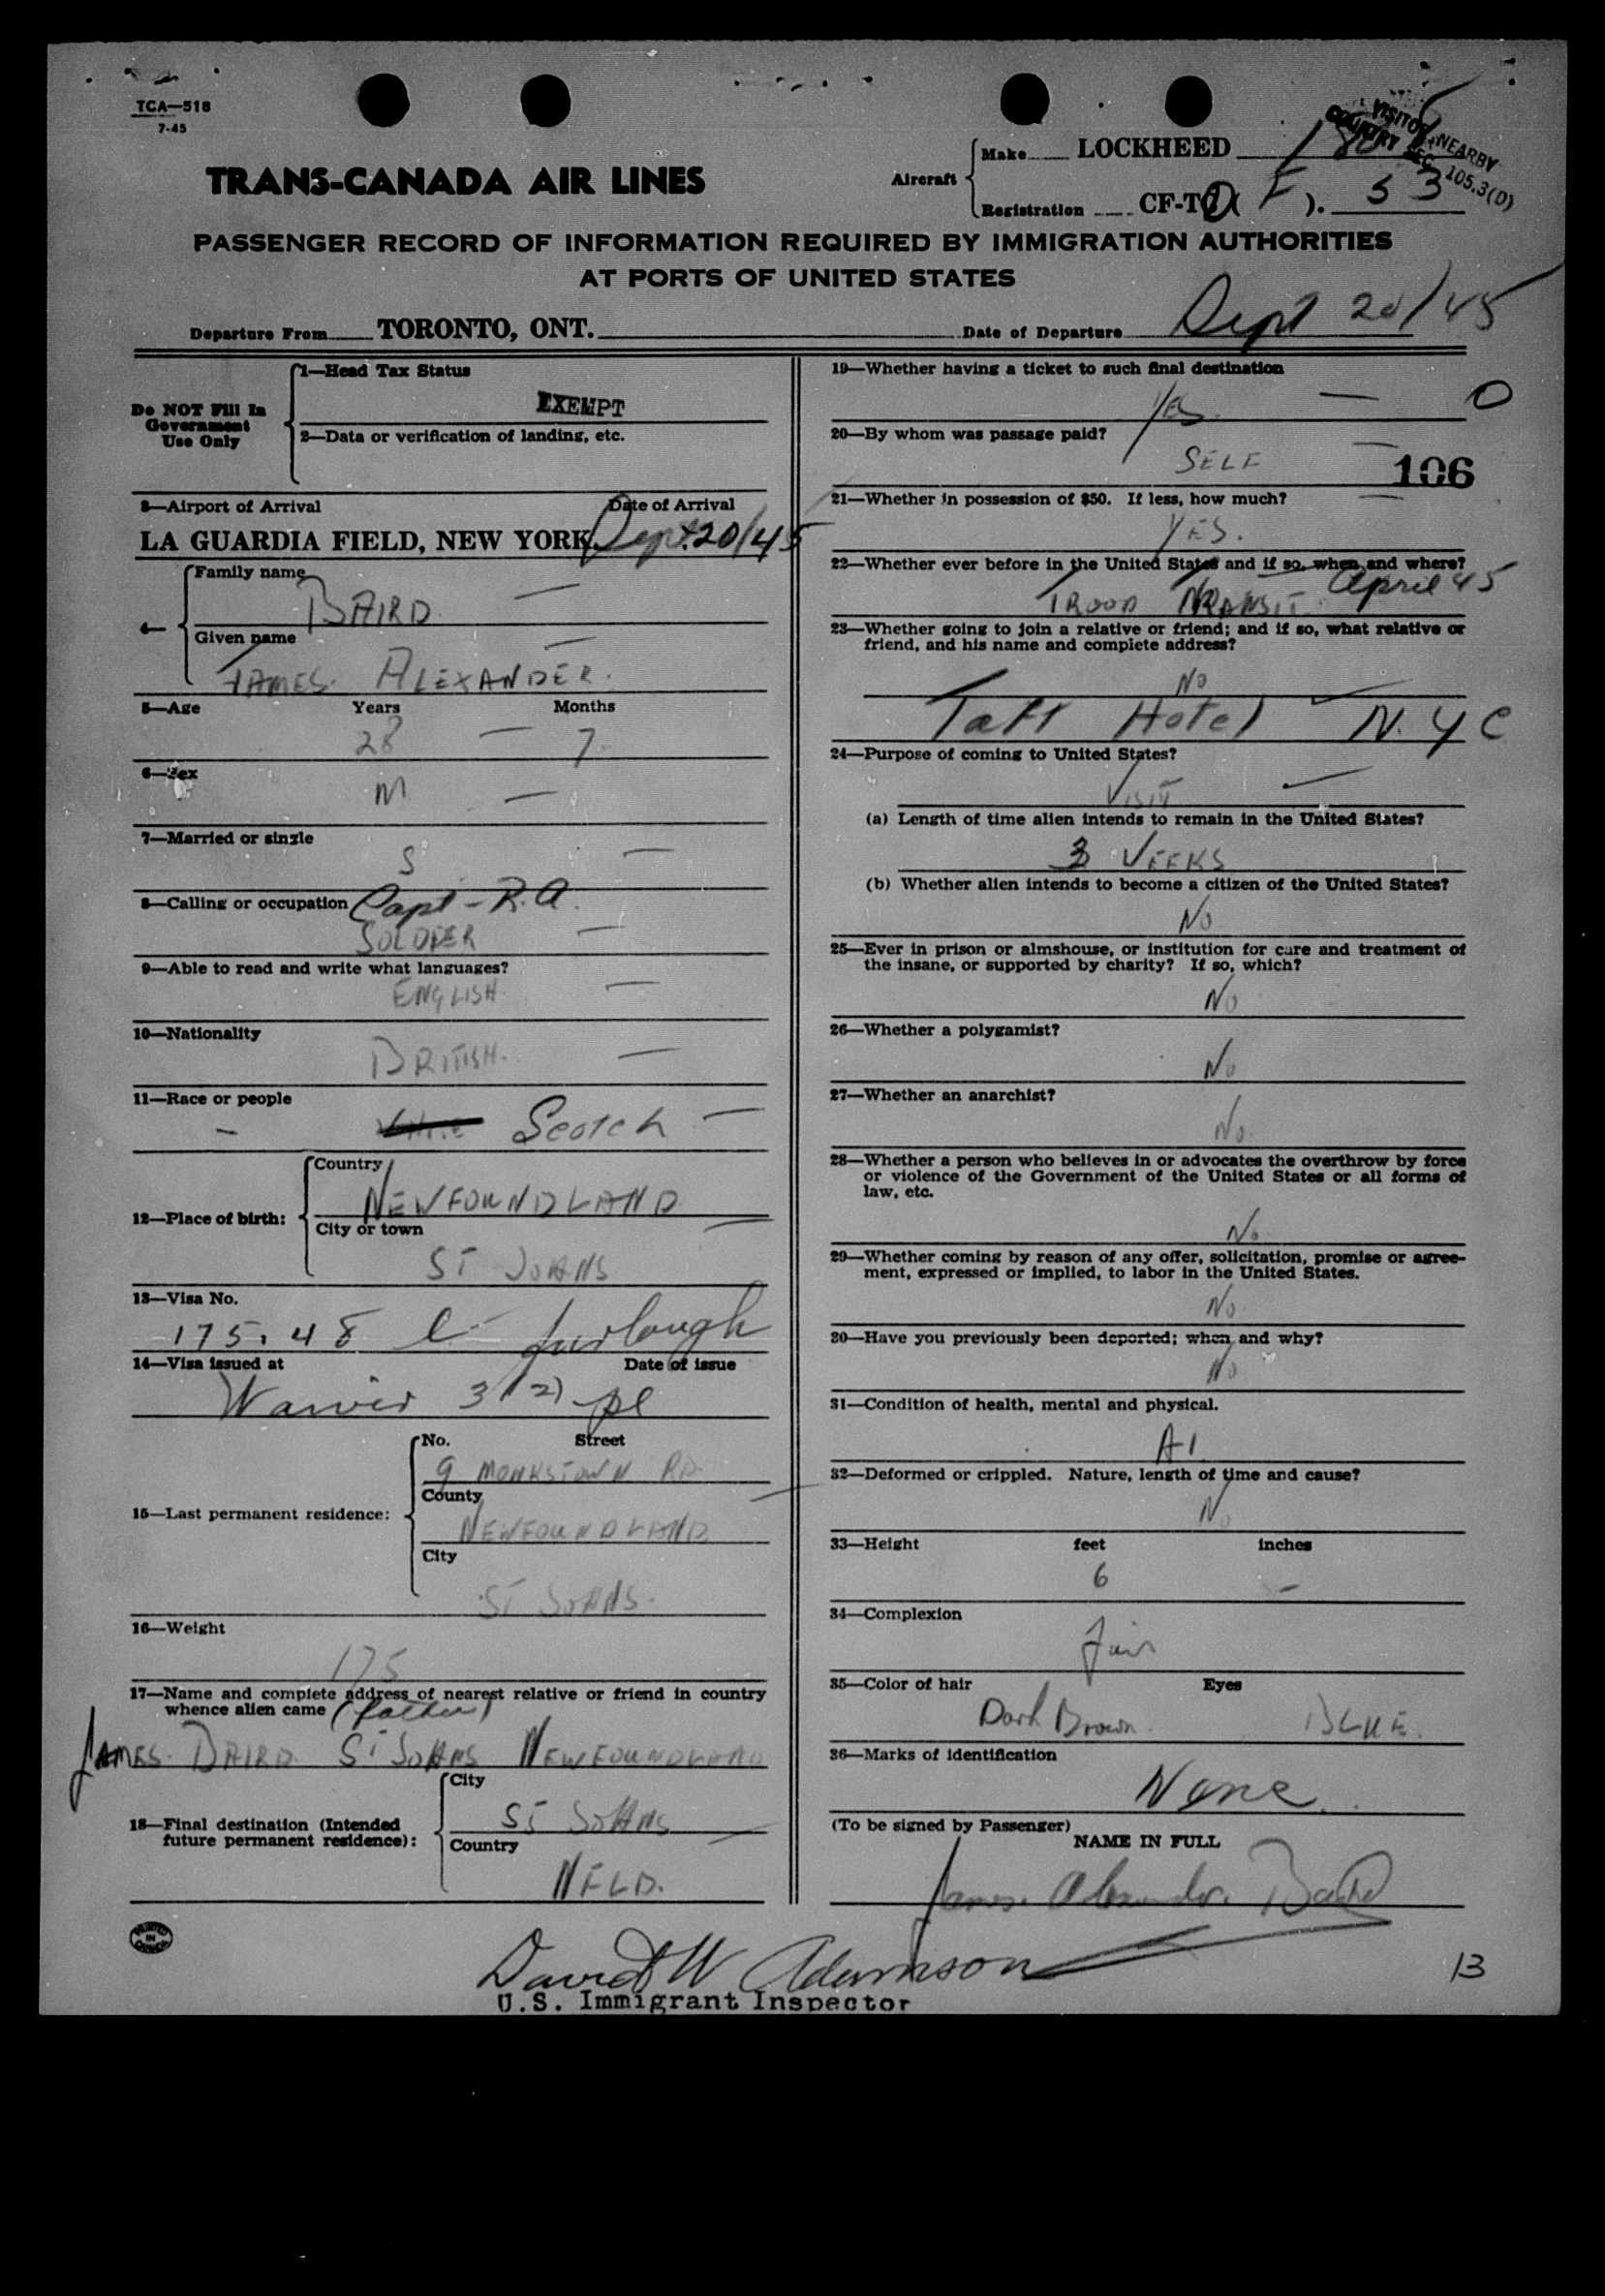 TCA—518
7-45
TRANS-CANADA AIR LINES
Aircraft
Make LOCKHEED
Registration CF-T( F ). 53
VISITOR NEARBY
COUNTRY SEC. 105.3(D)
PASSENGER RECORD OF INFORMATION REQUIRED BY IMMIGRATION AUTHORITIES
AT PORTS OF UNITED STATES
Departure From TORONTO, ONT. Date of Departure Sept 20/45
Do NOT Fill In
Government
Use Only
1—Head Tax Status
EXEMPT
2—Data or verification of landing, etc.
3—Airport of Arrival Date of Arrival
LA GUARDIA FIELD, NEW YORK Sept. 20/45
4—
Family name
BAIRD
Given name
JAMES. ALEXANDER.
5—Age Years Months
28 7
6—Sex
M
7—Married or single
S
8—Calling or occupation Capt - R.A.
SOLDIER
9—Able to read and write what languages?
ENGLISH
10—Nationality
BRITISH.
11—Race or people
Scotch
12—Place of birth:
Country
NEWFOUNDLAND
City or town
ST JOHNS
13—Visa No.
175.48 furlough
14—Visa issued at Date of issue
Waiver 3(2)
15—Last permanent residence:
No. Street
9 MONKSTOWN RD
County
NEWFOUNDLAND
City
ST JOHNS.
16—Weight
175
17—Name and complete address of nearest relative or friend in country
whence alien came (father)
JAMES. BAIRD. ST JOHNS NEWFOUNDLAND
18—Final destination (Intended
future permanent residence):
City
ST JOHNS
Country
NFLD.
19—Whether having a ticket to such final destination
YES. O
20—By whom was passage paid?
SELF
106
21—Whether in possession of $50. If less, how much?
YES.
22—Whether ever before in the United States and if so, when and where?
TROOP TRANSIT April 45
23—Whether going to join a relative or friend; and if so, what relative or
friend, and his name and complete address?
NO
Taft Hotel N.Y C
24—Purpose of coming to United States?
VISIT
(a) Length of time alien intends to remain in the United States?
3 WEEKS
(b) Whether alien intends to become a citizen of the United States?
No
25—Ever in prison or almshouse, or institution for care and treatment of
the insane, or supported by charity? If so, which?
No
26—Whether a polygamist?
No
27—Whether an anarchist?
No.
28—Whether a person who believes in or advocates the overthrow by force
or violence of the Government of the United States or all forms of
law, etc.
No
29—Whether coming by reason of any offer, solicitation, promise or agree-
ment, expressed or implied, to labor in the United States.
No.
30—Have you previously been deported; when and why?
No
31—Condition of health, mental and physical.
A1
32—Deformed or crippled. Nature, length of time and cause?
No
33—Height feet inches
6 —
34—Complexion
Fair
35—Color of hair Eyes
Dark Brown. BLUE.
36—Marks of identification
None.
(To be signed by Passenger)
NAME IN FULL
James. Alexander. Baird
David W Adamson
U.S. Immigrant Inspector
13